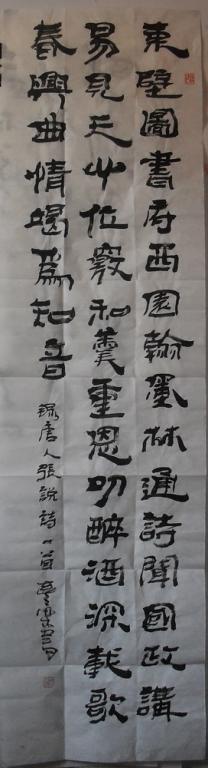 東壁圖書府西園翰墨林通詩聞國政講
易見天心位竊和羹重恩叨醉酒深載歌
春興曲情竭爲知音
録唐人張說詩一首